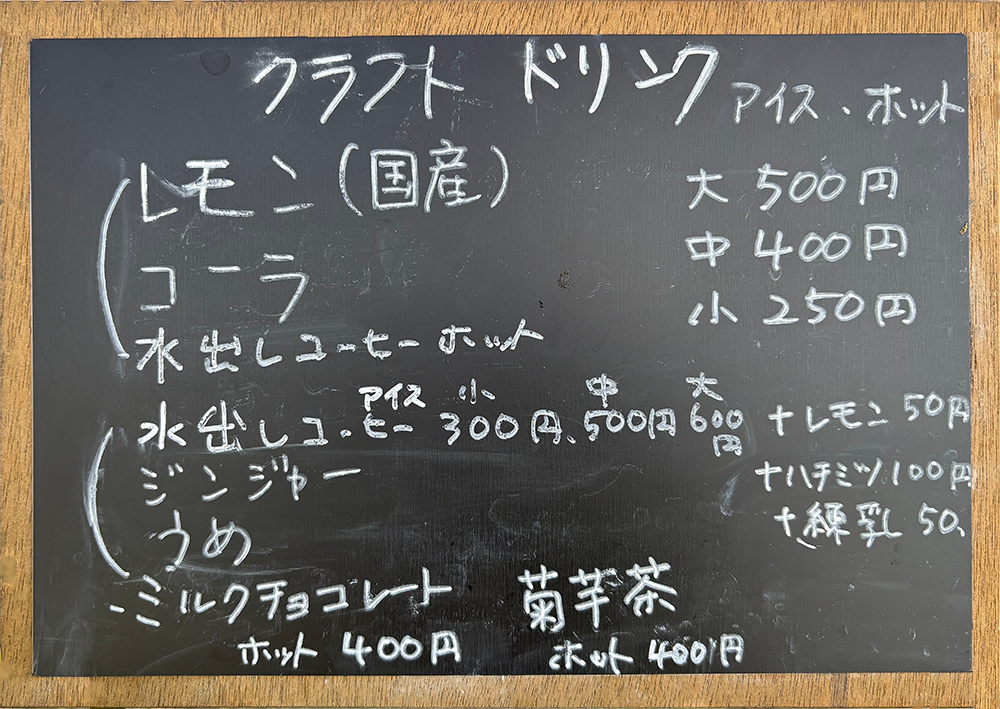 クラフト ドリンク アイス・ホット
レモン(国産) 大 500円
中 400円
コーラ
小 250円
水出しコーヒー ホット
アイス 小 中 大
水出しコーヒー 300円、500円 600円
+レモン 50円
ジンジャー +ハチミツ 100円
うめ +練乳 50、
ミルクチョコレート 菊芋茶
ホット 400円 ホット 400円